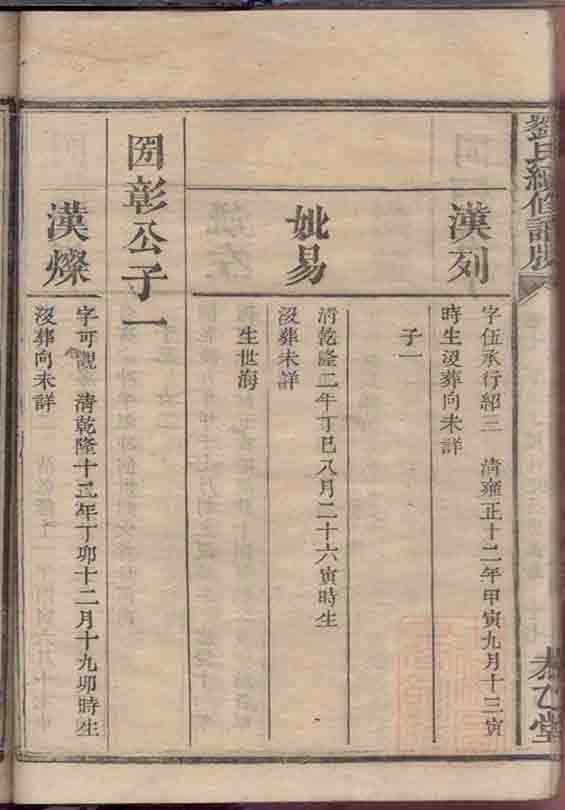 劉氏續修譜
乙堂
漢列
字伍承行紹三 清雍正十二年甲寅九月十三寅
時生沒葬向未詳
子一
妣易
清乾隆二年丁巳八月二十六寅時生
沒葬未詳
生世海
芳彰公子一
漢燦
字可觀 清乾隆十二年丁卯十二月十九卯時生
沒葬向未詳